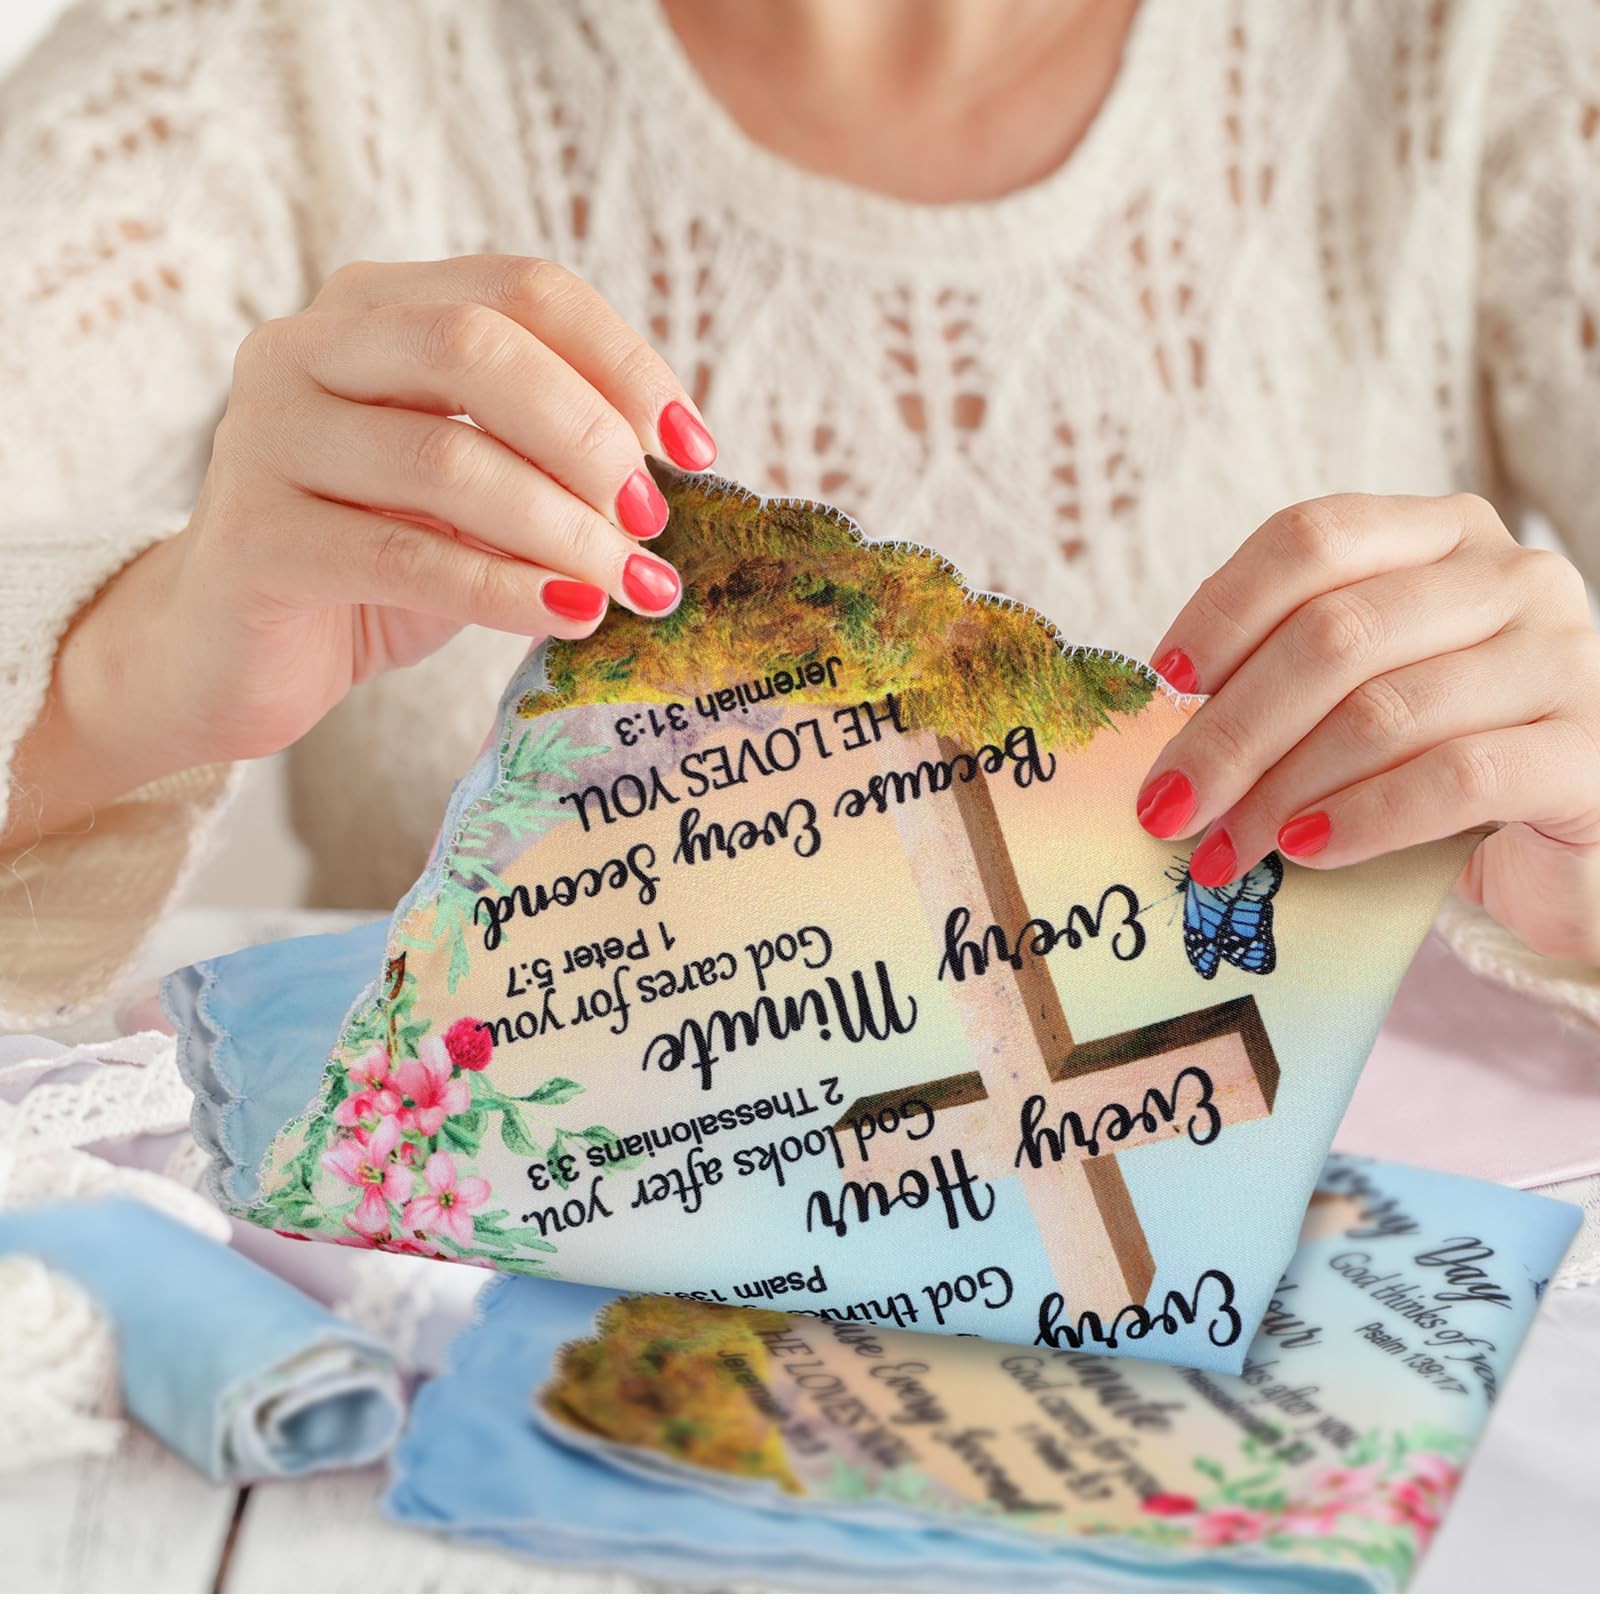 Every
God thin
Psalm 139
Every Hour
God looks after you.
2 Thessalonians 3:3
Every Minute
God cares for you.
1 Peter 5:7
Because Every Second
HE LOVES YOU.
Jeremiah 31:3
Every Day
God thinks of
Psalm 139:17
Hour
after you.
Minute
God cares for you
1 Peter 5:7
Every Second
HE LOVES YOU.
Jeremiah